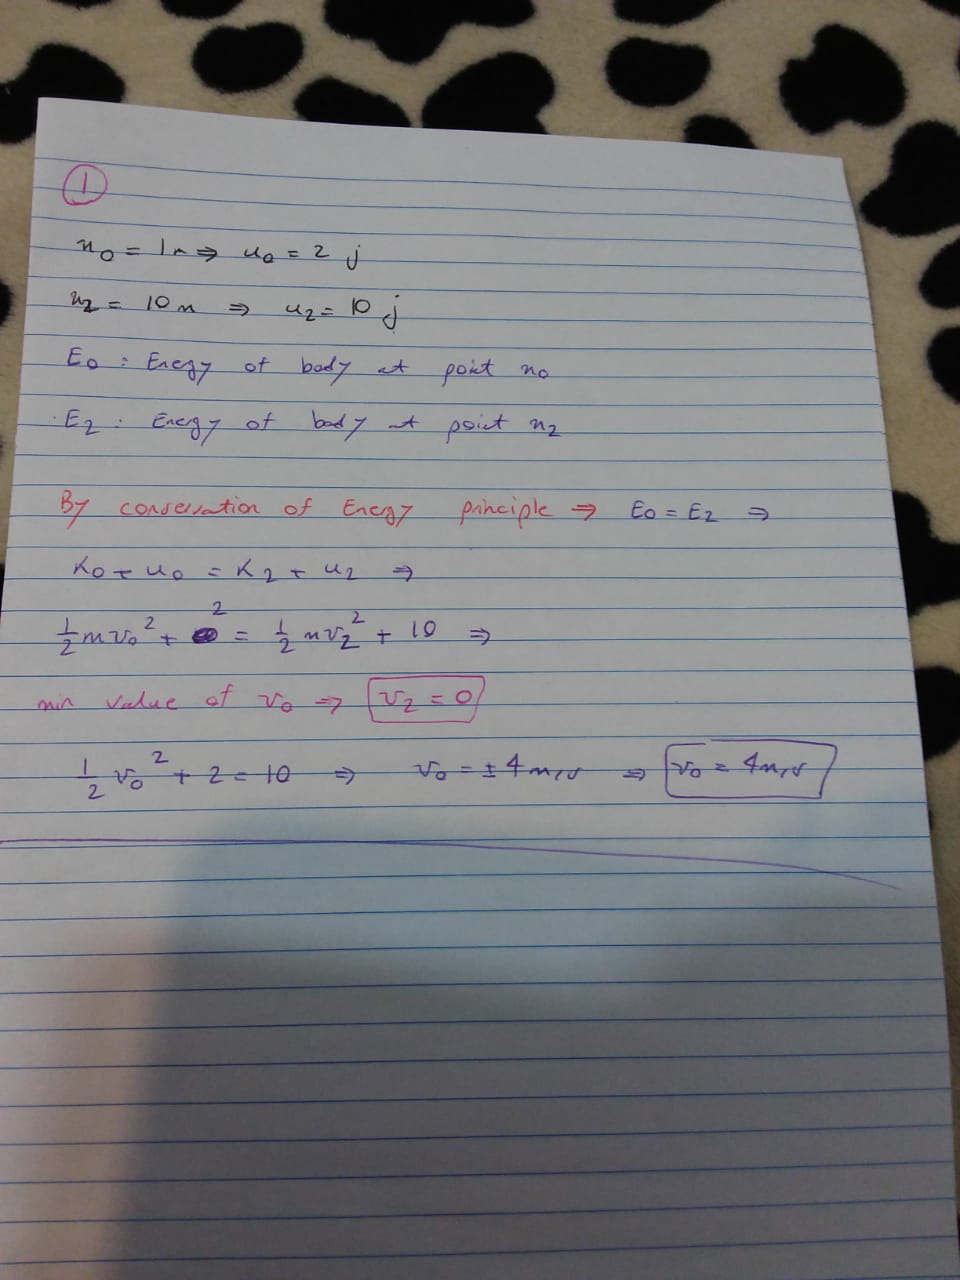 1
x₀ = 1m ⇒ u₀ = 2 j
x₂ = 10m ⇒ u₂ = 10 j
E₀ : Energy of body at point x₀
E₂ : Energy of body at point x₂
By conservation of Energy principle ⇒ E₀ = E₂ ⇒
K₀ + u₀ = K₂ + u₂ ⇒
1/2 m v₀² + 2 = 1/2 m v₂² + 10 ⇒
min value of v₀ ⇒ v₂ = 0
1/2 v₀² + 2 = 10 ⇒ v₀ = ± 4 m/s ⇒ v₀ = 4 m/s